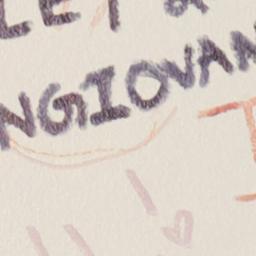 LET &
NGIOVAN